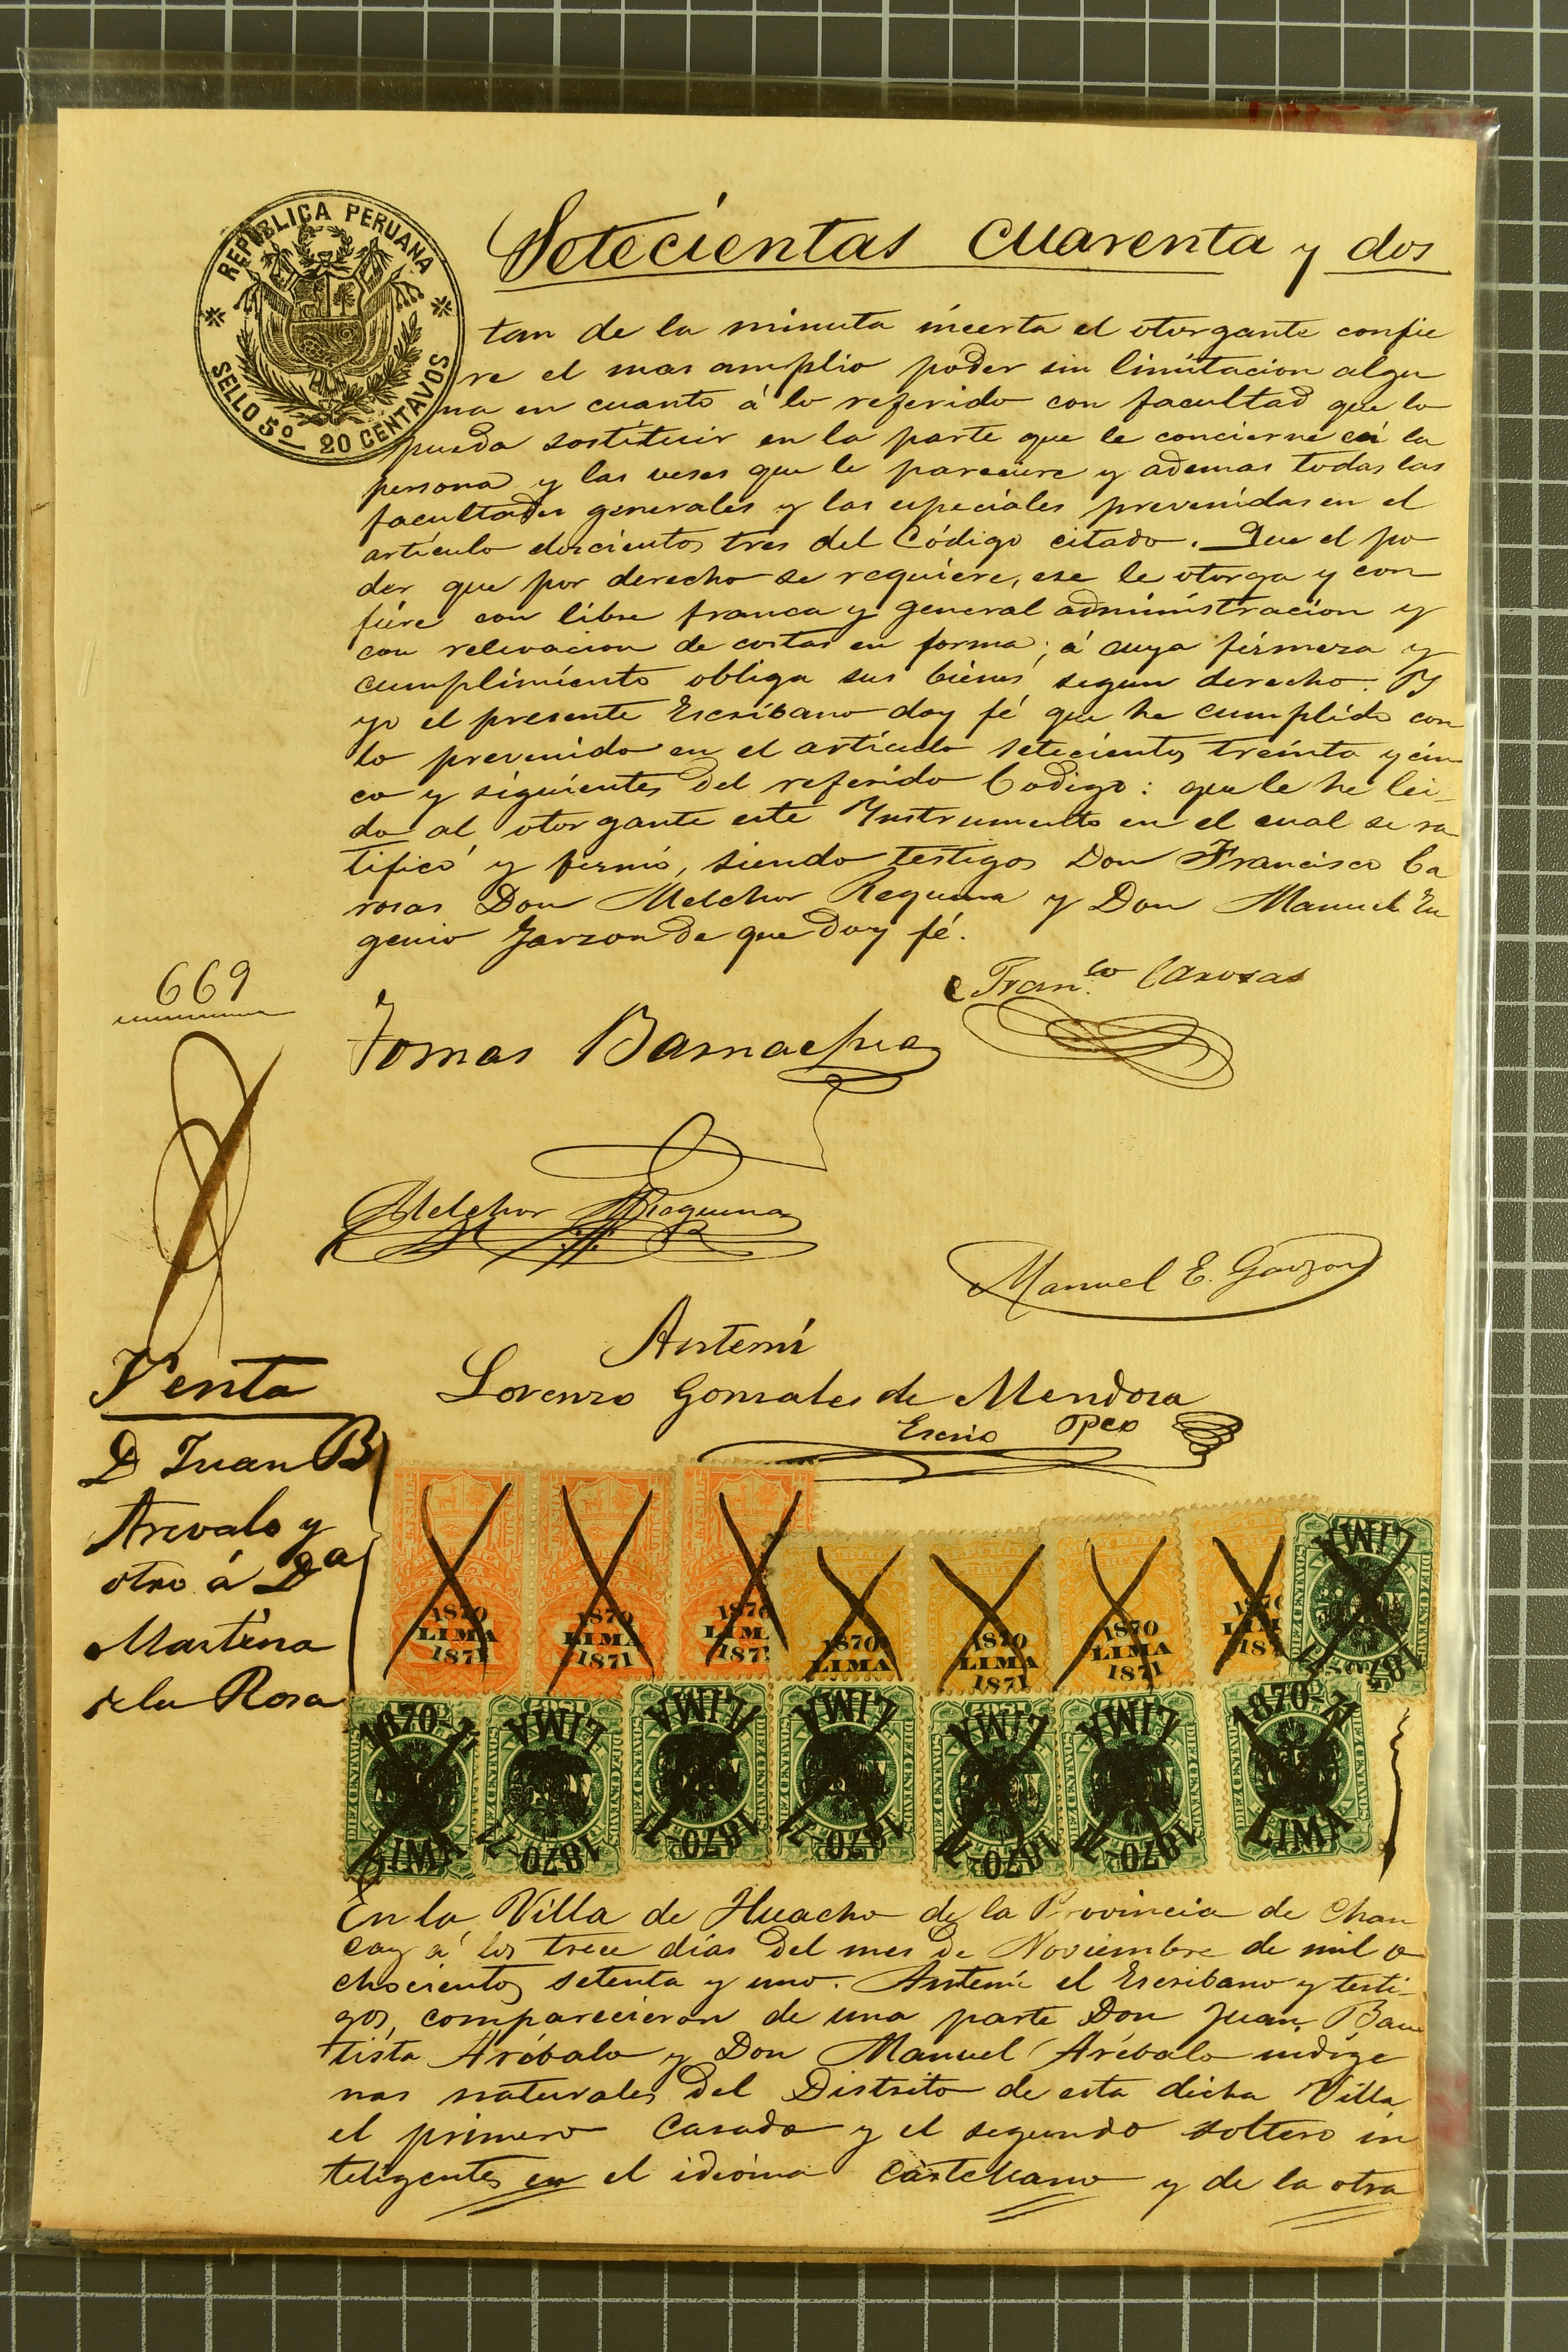 REPUBLICA PERUANA
SELLO 5º 20 CENTAVOS
Setecientas cuarenta y dos
tan de la minuta incerta el otorgante confie
re el mas amplio poder sin limitacion algu
na en cuanto á lo referido con facultad que lo
pueda sostituir en la parte que le concierne en la
persona y las veses que le pareciere y ademas todas las
facultades generales y las especiales prevenidas en el
artículo doscientos tres del Código citado. Que el po
der que por derecho se requiere, ese le otorga y con
fiere con libre franca y general administracion y
con relevacion de costas en forma; á cuya firmeza y
cumplimiento obliga sus bienes segun derecho. Y
yo el presente Escribano doy fé que he cumplido con
lo prevenido en el artículo setecientos treinta y cin
co y siguientes del referido Codigo: que le he lei-
do al otorgante este Instrumento en el cual se ra
tificó y firmó, siendo testigos Don Francisco Ca
rosas Don Melchor Requena y Don Manuel Eu
genio Garzon de que doy fé.
669
Fran.co Carosas
Tomas Barnachea
Melchor Requena
Manuel E. Garzon
Antemí
Lorenzo Gonzales de Mendoza
Escrio Pco
Venta
D Juan B
Arevalo y
otro á Da
Martina
de la Rosa
1870 LIMA 1871
1870 LIMA 1871
1870 LIM 187
1870 LIMA
1870 LIMA 1871
1870 LIMA 1871
187 LIM 187
LIMA 1870-71 DIEZ CENTAVOS
1870-71 LIMA DIEZ CENTAVOS
LIMA 1870-71 DIEZ CENTAVOS
LIMA 1870-71 DIEZ CENTAVOS
LIMA 1870-71 DIEZ CENTAVOS
LIMA 1870-71 DIEZ CENTAVOS
LIMA 1870-71 DIEZ CENTAVOS
1870-71 LIMA DIEZ CENTAVOS
En la Villa de Huacho de la Provincia de Chan
cay á los trece días del mes de Noviembre de mil o
chocientos setenta y uno. Antemí el Escribano y testi-
gos, comparecieron de una parte Don Juan Bau
tista Arébalo y Don Manuel Arébalo indíge
nas naturales del Distrito de esta dicha Villa
el primero casado y el segundo soltero in
teligentes en el idioma castellano y de la otra